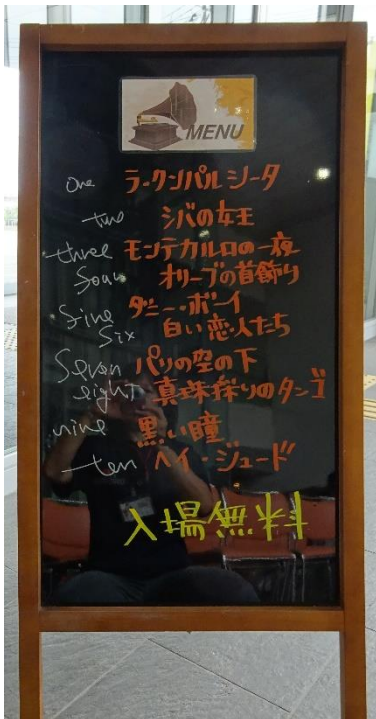 MENU
one ラ・クンパルシータ
two シバの女王
three モンテカルロの一夜
four オリーブの首飾り
five ダニー・ボーイ
six 白い恋人たち
seven パリの空の下
eight 真珠採りのタンゴ
nine 黒い瞳
ten ヘイ・ジュード
入場無料